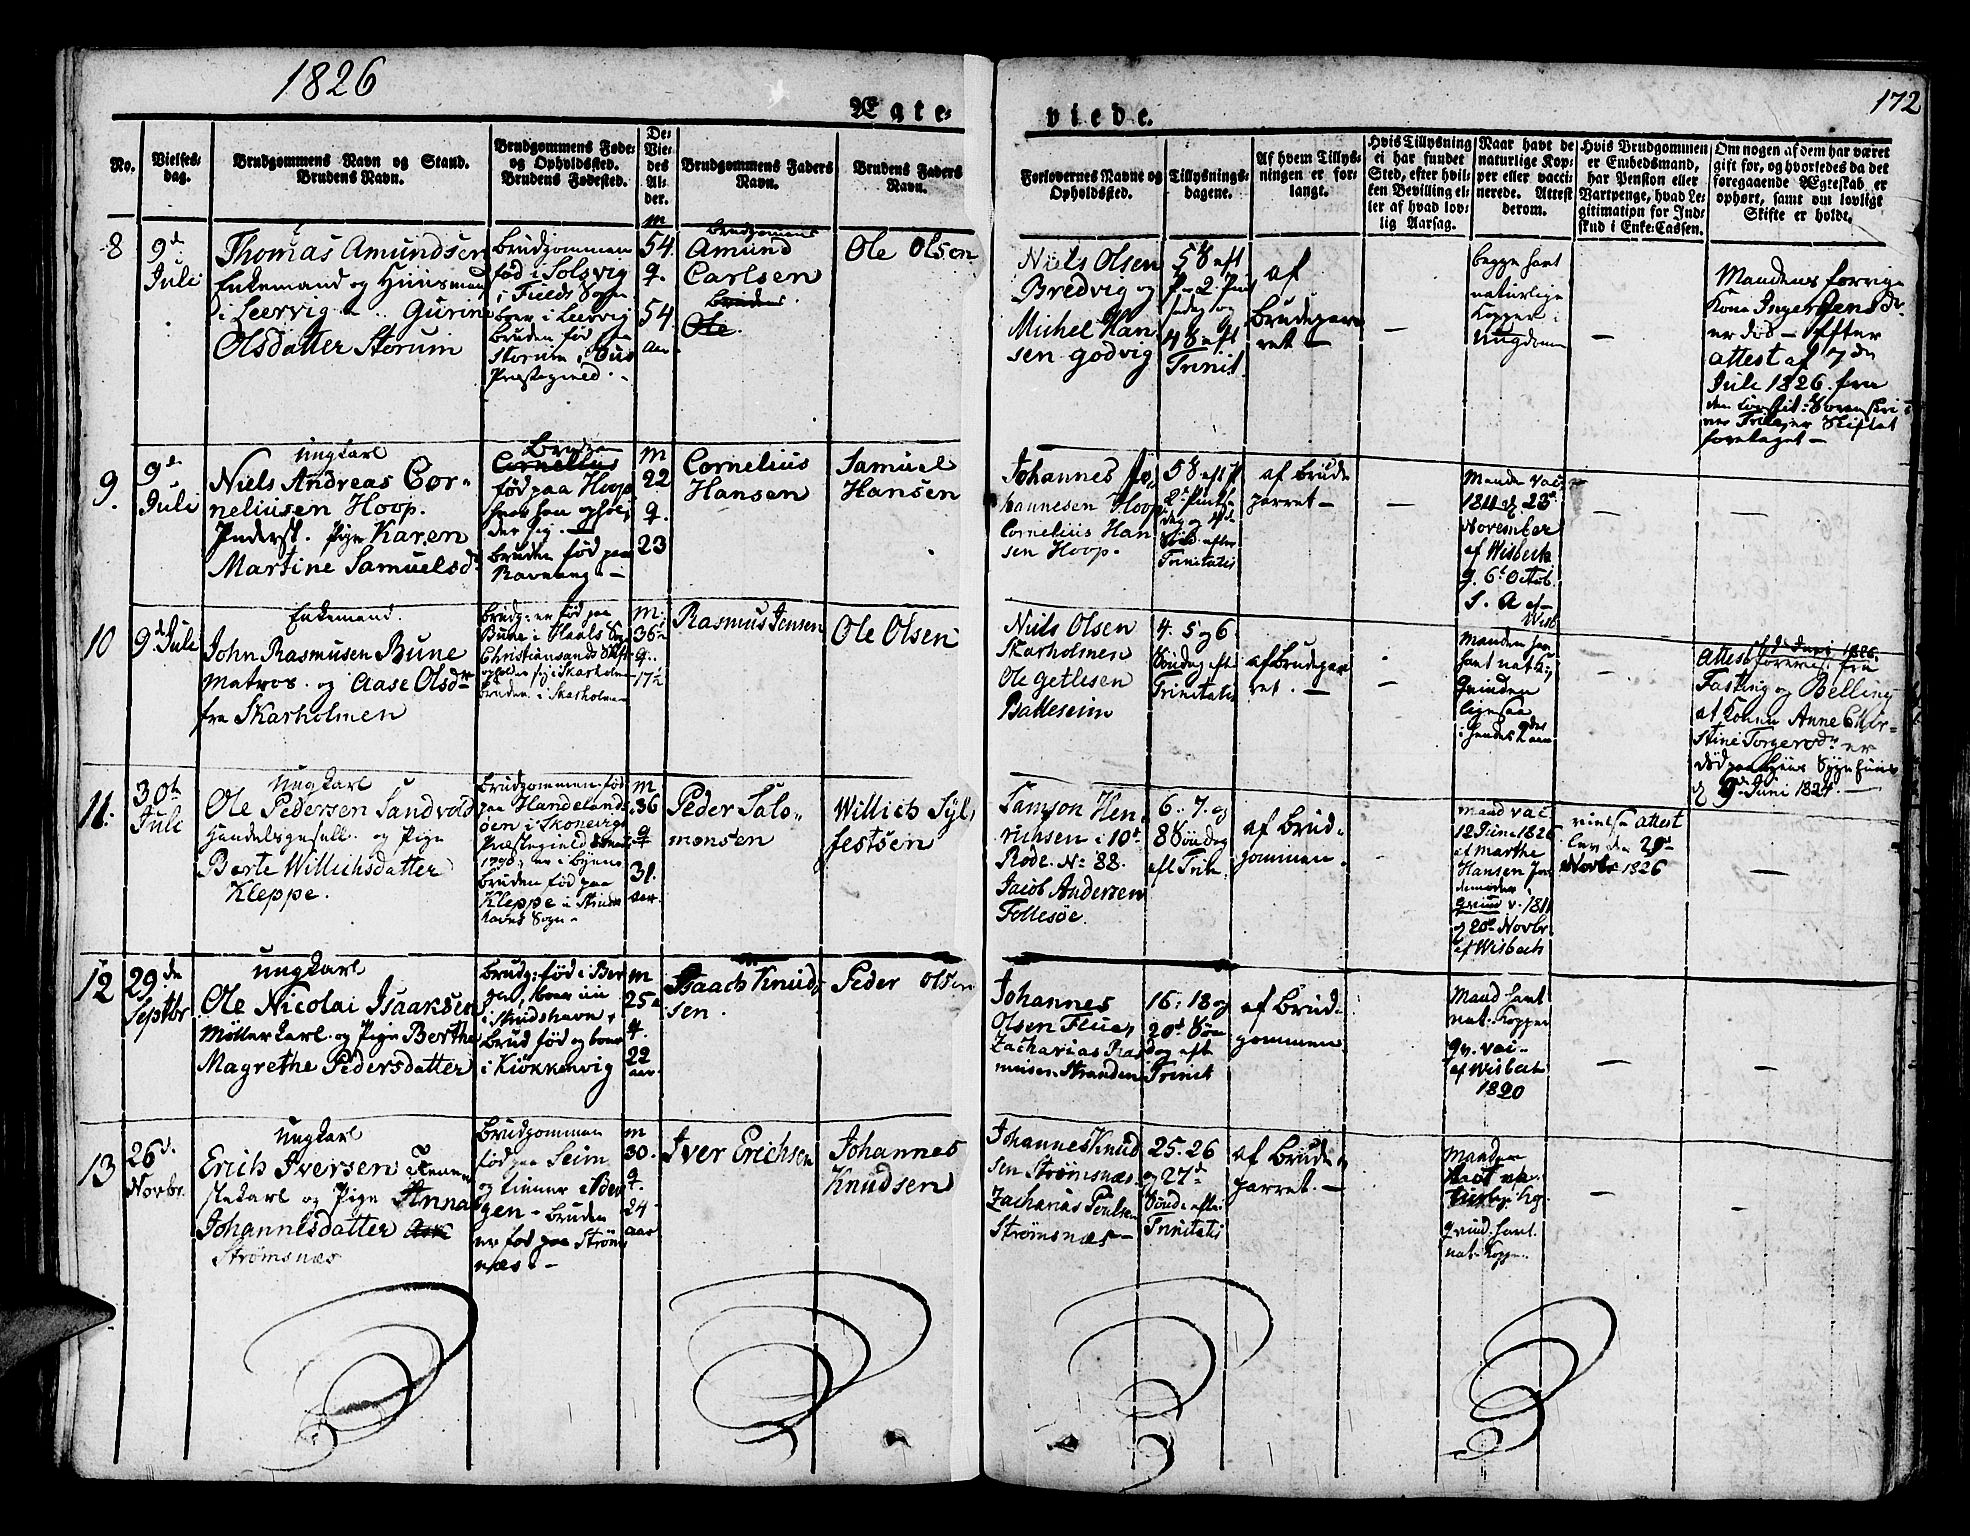 1826
172
Ægte-
viede.
No.
Vielses-
dag.
Brudgommens Navn og Stand.
Brudens Navn.
Brudgommens Føde-
og Opholdssted.
Brudens Fødested.
De
Vie-
des
Al-
der.
Brudgommens Faders
Navn.
Brudens Faders
Navn.
Forlovernes Navne og
Opholdssted.
Tillysnings-
dagene.
Af hvem Tillys-
ningen er for-
langt.
Hvis Tillysning
ei har fundet
Sted, efter hvil-
ken Bevilling el-
ler af hvad lov-
lig Aarsag.
Naar havt de
naturlige Kop-
per eller vacci-
nerede. Attest
derom.
Hvis Brudgommen
er Embedsmand,
har Pension eller
Vartpenge, hvad Le-
gitimation for Ind-
skud i Enke-Cassen.
Om nogen af dem har været
gift før, og hvorledes da det
foregaaende Ægteskab er
ophørt, samt om lovligt
Skifte er holdt.
8
9d
Juli
Thomas Amundsen
Enkemand og Huusmand
i Leervig Gurine
Olsdatter Storum
Brudgommen
fød i Solsvig
i Fields Sogn
boer i Leervig
Bruden fød paa
Storum i Ous
Præstegield.
m
54.
q.
54.
aar
Brudgomens
Amund
Carlsen
Brudens
Ole.
Ole Olsen
Niels Olsen
Bredvig og
Michel Han
sen godvig
5 S eft
P. 2 Pint
sedag og
4 S eft
Trinit.
af
Brudepar
ret —
—
begge havt
naturlige
Kopper i
Ungdom
—
Mandens forrige
Kone Inger Jensdr
er død — Efter
attest af 7de
Juli 1826 fra
den Constit: Sorenskri
ver Skiftet
foretaget —
9.
9d
Juli
Ungkarl
Niels Andreas Cor-
neliusen Hoop.
Pige Karen
Martine Samuelsdr
Brudgo
Cornelius
fød paa Hoop
hvor han ophol
der sig. —
Bruden fød paa
Ravnang. —
m
22
q.
23
Cornelius
Hansen
Samuel
Hansen
Johannes Jo
hannesen Hoop
Cornelius Han
sen Hoop.
5 S eft
2d Pintse
dag og 4de
Sønd. efter
Trinitatis
af Brude
parret —
—
Manden vac
1811 d 23d
November
af Wisbech
q. 6t Octob.
S. A af
Wisb
—
—
10
9d Juli
Enkemand.
John Rasmusen Bune
Matros. og Aase Olsdr
fra Skarholmen
Brudg: er fød paa
Bune i Haals Sogn
Christiansands Stift
opholder sig i Skarholm
bruden i Skarholmen
m.
36
q.
17½
Rasmus Jensen
Ole Olsen
Niels Olsen
Skarholmen
Ole getlesen
Balleseim
4. 5 og 6
Søndag eft
Trinitatis
af Brudepar
ret. —
—
Manden har
havt nat k.
Qvinden
ligesaa
i hendes 2 aar
—
Attest foreviist fra
Juni 1826
Fasting og Belling
at Konen Anne Chri-
stine Torgersdr er
død paa Byens Sygehuus
d 9d Juni 1824. —
11.
30te
Juli
Ungkarl
Ole Pedersen Sandvold
Handelsgesell. og Pige
Berte Willichsdatter
Kleppe.
Brudgommen fød
paa Handeland
øen i Skonevigs
Præstegield
1790, er i Byen
Bruden fød paa
Kleppe i Strude
havns Sogn —
m
36
q
31.
aar.
Peder Salo-
monsen
Willich Syl
festsen
Samson Hen
richsen i 10d
Rode. No 88.
Jacob Andersen
Follesøe.
6. 7. og
8 Søndag
eft Trin.
af Brud-
gommen.
Mand vac
12 Juni 1826
af Marthe
Hansen Jor
demoder
Qvind v. 1811
d 20d Novbr
af Wisbech
vielse attest
lev. den 29d
Novbr 1826
—
12
29de
Septbr
Ungkarl
Ole Nicolai Isaaksen
Møllerkarl. og Pige Berthe
Magrethe Pedersdatter
Brudg: fød i Ber
gen, boer nu
i Strudshavn,
Brud fød og boer
i Kiøkkenvig
m
25
q.
22
aar
Isaach Knud
sen.
Peder Olsen
Johannes
Olsen Flue,
Zacharias Ras
musen Stranden
16: 18 og
20d Søn
dag eft
Trinit
af Brud-
gommen
Mand havt
nat. Kopper
qv. vac-
af Wisbech
1820
—
—
13
26d.
Novbr.
Ungkarl
Erich Iversen Tiene
stekarl og Pige Anna
Johannesdatter Ask
Strømsnæs
Brudgommen
fød paa Seim
og tiener i Ber
gen — Bruden
er fød paa Strøm
næs. —
m
30.
q.
24
aar
Iver Erichsen
Johannes
Knudsen
Johannes Knud
sen Strømsnæs
Zacharias Poulsen
Strømsnæs —
25. 26
og 27d
Sønd. efter
Trinitatis
af Brude
parret. —
Manden
havt na
turlig. kop.
Qvind. havt
nat. Kopper.
—
—